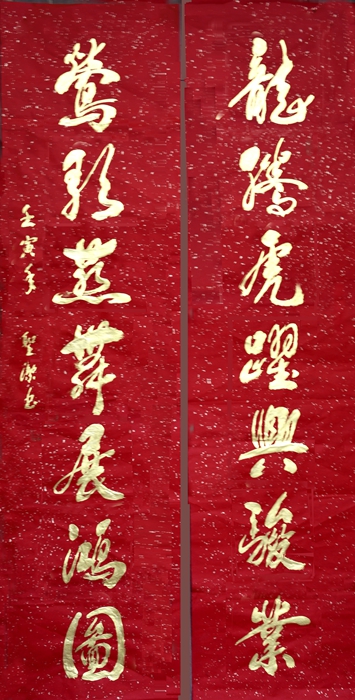 龍騰虎躍興駿業
鶯歌燕舞展鴻圖
壬寅年